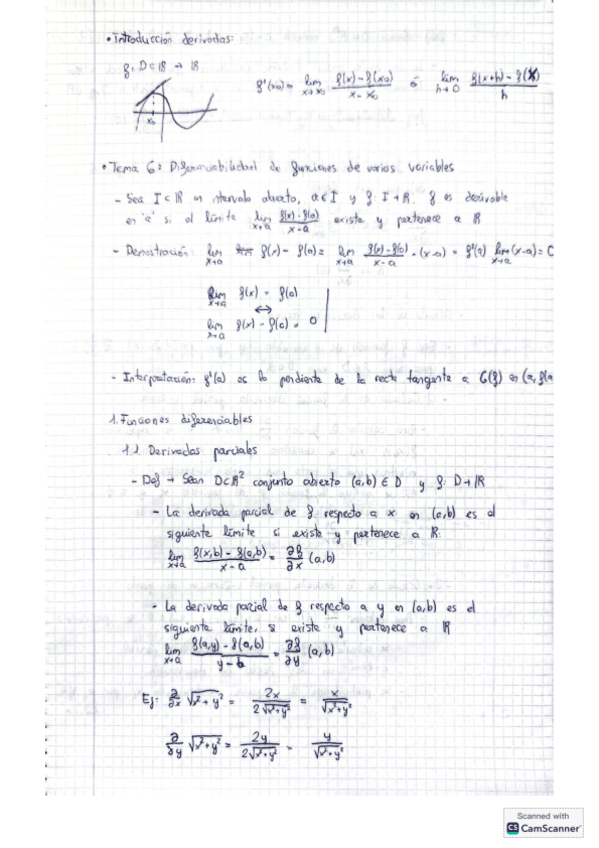 • Introducción derivadas:
f: D⊂ℝ → ℝ
f'(x₀) = lim x→x₀ (f(x) - f(x₀))/(x - x₀) ó lim h→0 (f(x+h) - f(x))/h
x₀
• Tema 6: Diferenciabilidad de funciones de varias variables
- Sea I⊂ℝ un intervalo abierto, a∈I y f: I→ℝ. f es derivable
en 'a' si el límite lim x→a (f(x) - f(a))/(x - a) existe y pertenece a ℝ
- Demostración: lim x→a f(x) - f(a) = lim x→a (f(x) - f(a))/(x - a) · (x-a) = f'(a) lim x→a (x-a) = 0
lim x→a f(x) = f(a)
↔
lim x→a f(x) - f(a) = 0
- Interpretación: f'(a) es la pendiente de la recta tangente a G(f) en (a, f(a
1. Funciones diferenciables
1.1. Derivadas parciales
- Def → Sean D⊂ℝ² conjunto abierto (a,b) ∈ D y f: D→ℝ
- La derivada parcial de f respecto a x en (a,b) es el
siguiente límite si existe y pertenece a ℝ:
lim x→a (f(x,b) - f(a,b))/(x - a) = ∂f/∂x (a,b)
- La derivada parcial de f respecto a y en (a,b) es el
siguiente límite, si existe y pertenece a ℝ
lim x→a (f(a,y) - f(a,b))/(y - b) = ∂f/∂y (a,b)
Ej: ∂/∂x √(x²+y²) = 2x/(2√(x²+y²)) = x/√(x²+y²)
∂/∂y √(x²+y²) = 2y/(2√(x²+y²)) = y/√(x²+y²)
Scanned with
CS CamScanner